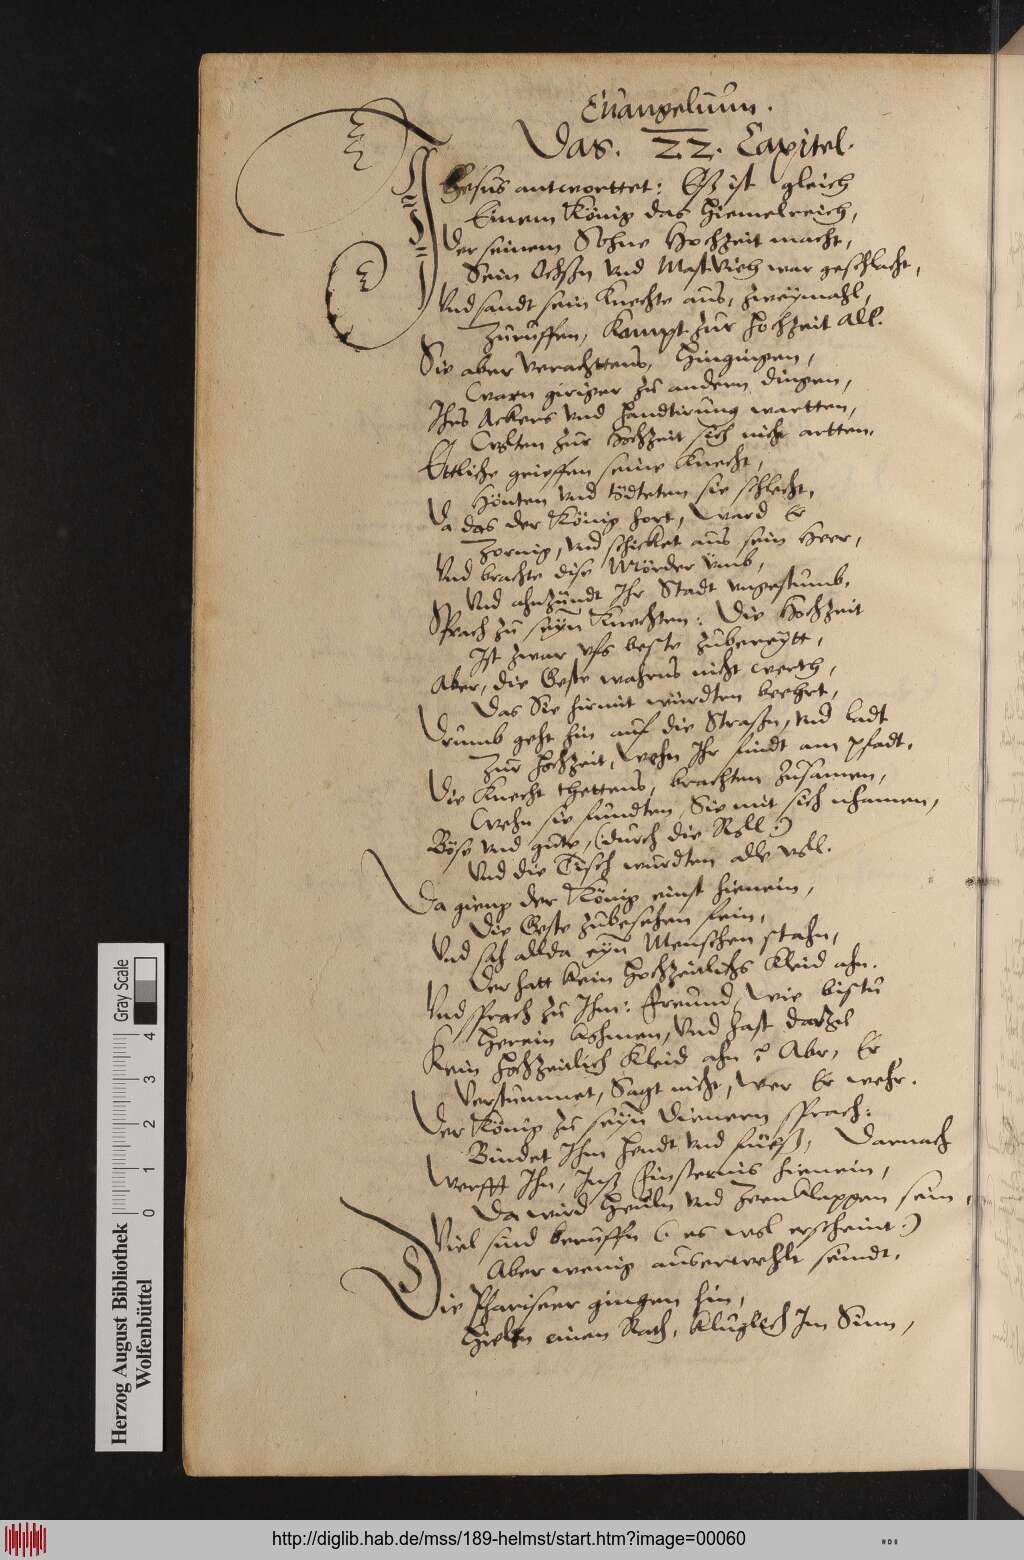 Euangelium.
Das. 22. Capitel.
JHesus antworttet: Eß ist gleich
Einem König das Hiemelreich,
Der seinem Sohne Hochzeit macht,
Sein Ochßn vnd Mastvieh war geschlacht,
Vnd sandt sein Knechte aus, zweÿmahl,
Zuruffen, Kompt zur Hochzeit all.
Sie aber verachttens, Hingingen,
Warn giriger zu andern dingen,
Ihrs Ackers vnd Handtirung wartten,
Wolten zur Hochzeit sich nicht artten.
Ettliche grieffen seine Knecht,
Hönten vnd tödteten sie schlecht,
Da das der König hort, ward Er
Zornig, vnd schicket aus sein Heer,
Vnd brachte dise Mörder vmb,
Vnd ahnzündt Ihr Stadt vngestumb.
Sprach zu seÿn Knechten: Die Hochzeit
Ist zwar vfs beste zubereÿtt,
Aber, die Geste wahrns nicht werth,
Das Sie hirmit würdten beehrt,
Drumb geht hin auf die Straßn, vnd ladt
Zur Hochzeit, wehn Ihr findt am pfadt.
Die Knecht thettens, brachten zusamen,
Wehn sie fundten, Sie mit sich nhamen,
Böse vnd gute, (durch die Roll:)
Vnd die Tisch wurdten alle voll.
Da gieng der König einst hienein,
Die Geste zubesehen fein,
Vnd sah allda eÿn Menschen stahn,
Der hatt kein Hochzeitlichs Kleid ahn.
Vnd sprach zu Ihm: Freund, Wie bistu
Herein kohmen, Vnd hast darzu
Kein Hochzeitlich Kleid ahn? Abr, Er
Verstummet, Sagt nicht, wer Er wehr.
Der König zu seÿn Dienern sprach:
Bindet Ihm Hendt vnd Füeß, Darnach
Werfft Ihn, Inß Finsternis hienein,
Da wird Heuln vnd Zeenklappen sein,
Viel sind beruffn (: es wol erscheint:)
Aber wenig auserwehlt seindt.
Die Phariseer gingen hin,
Hielten einen Rath, klüglich Im Sinn,
Herzog August Bibliothek
Wolfenbüttel
0 1 2 3 4
Gray Scale
http://diglib.hab.de/mss/189-helmst/start.htm?image=00060